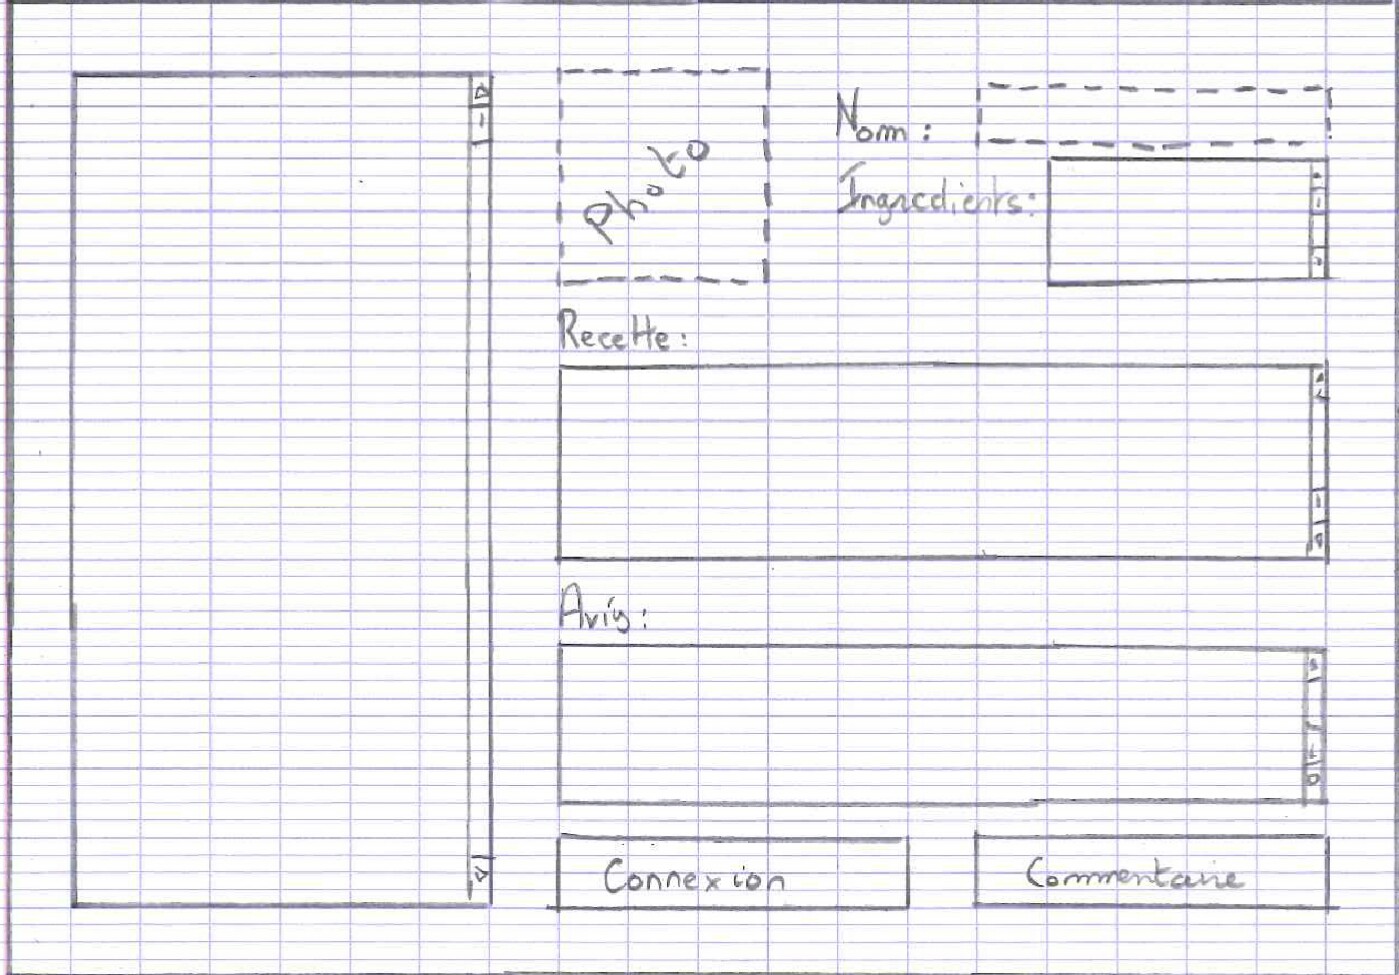 Photo
Nom :
Ingredients:
Recette :
Avis :
Connexion
Commentaire